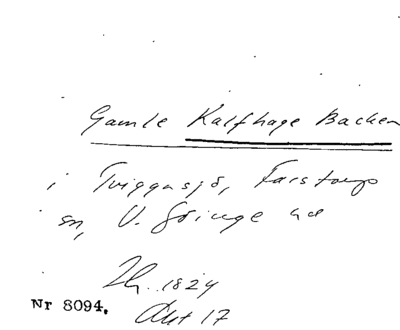 Gamle Kalfhage Backen
i Tviggasjö, Farstorps
sn, V. Göinge hd
Th. 1824
Nr 8094. Akt 17